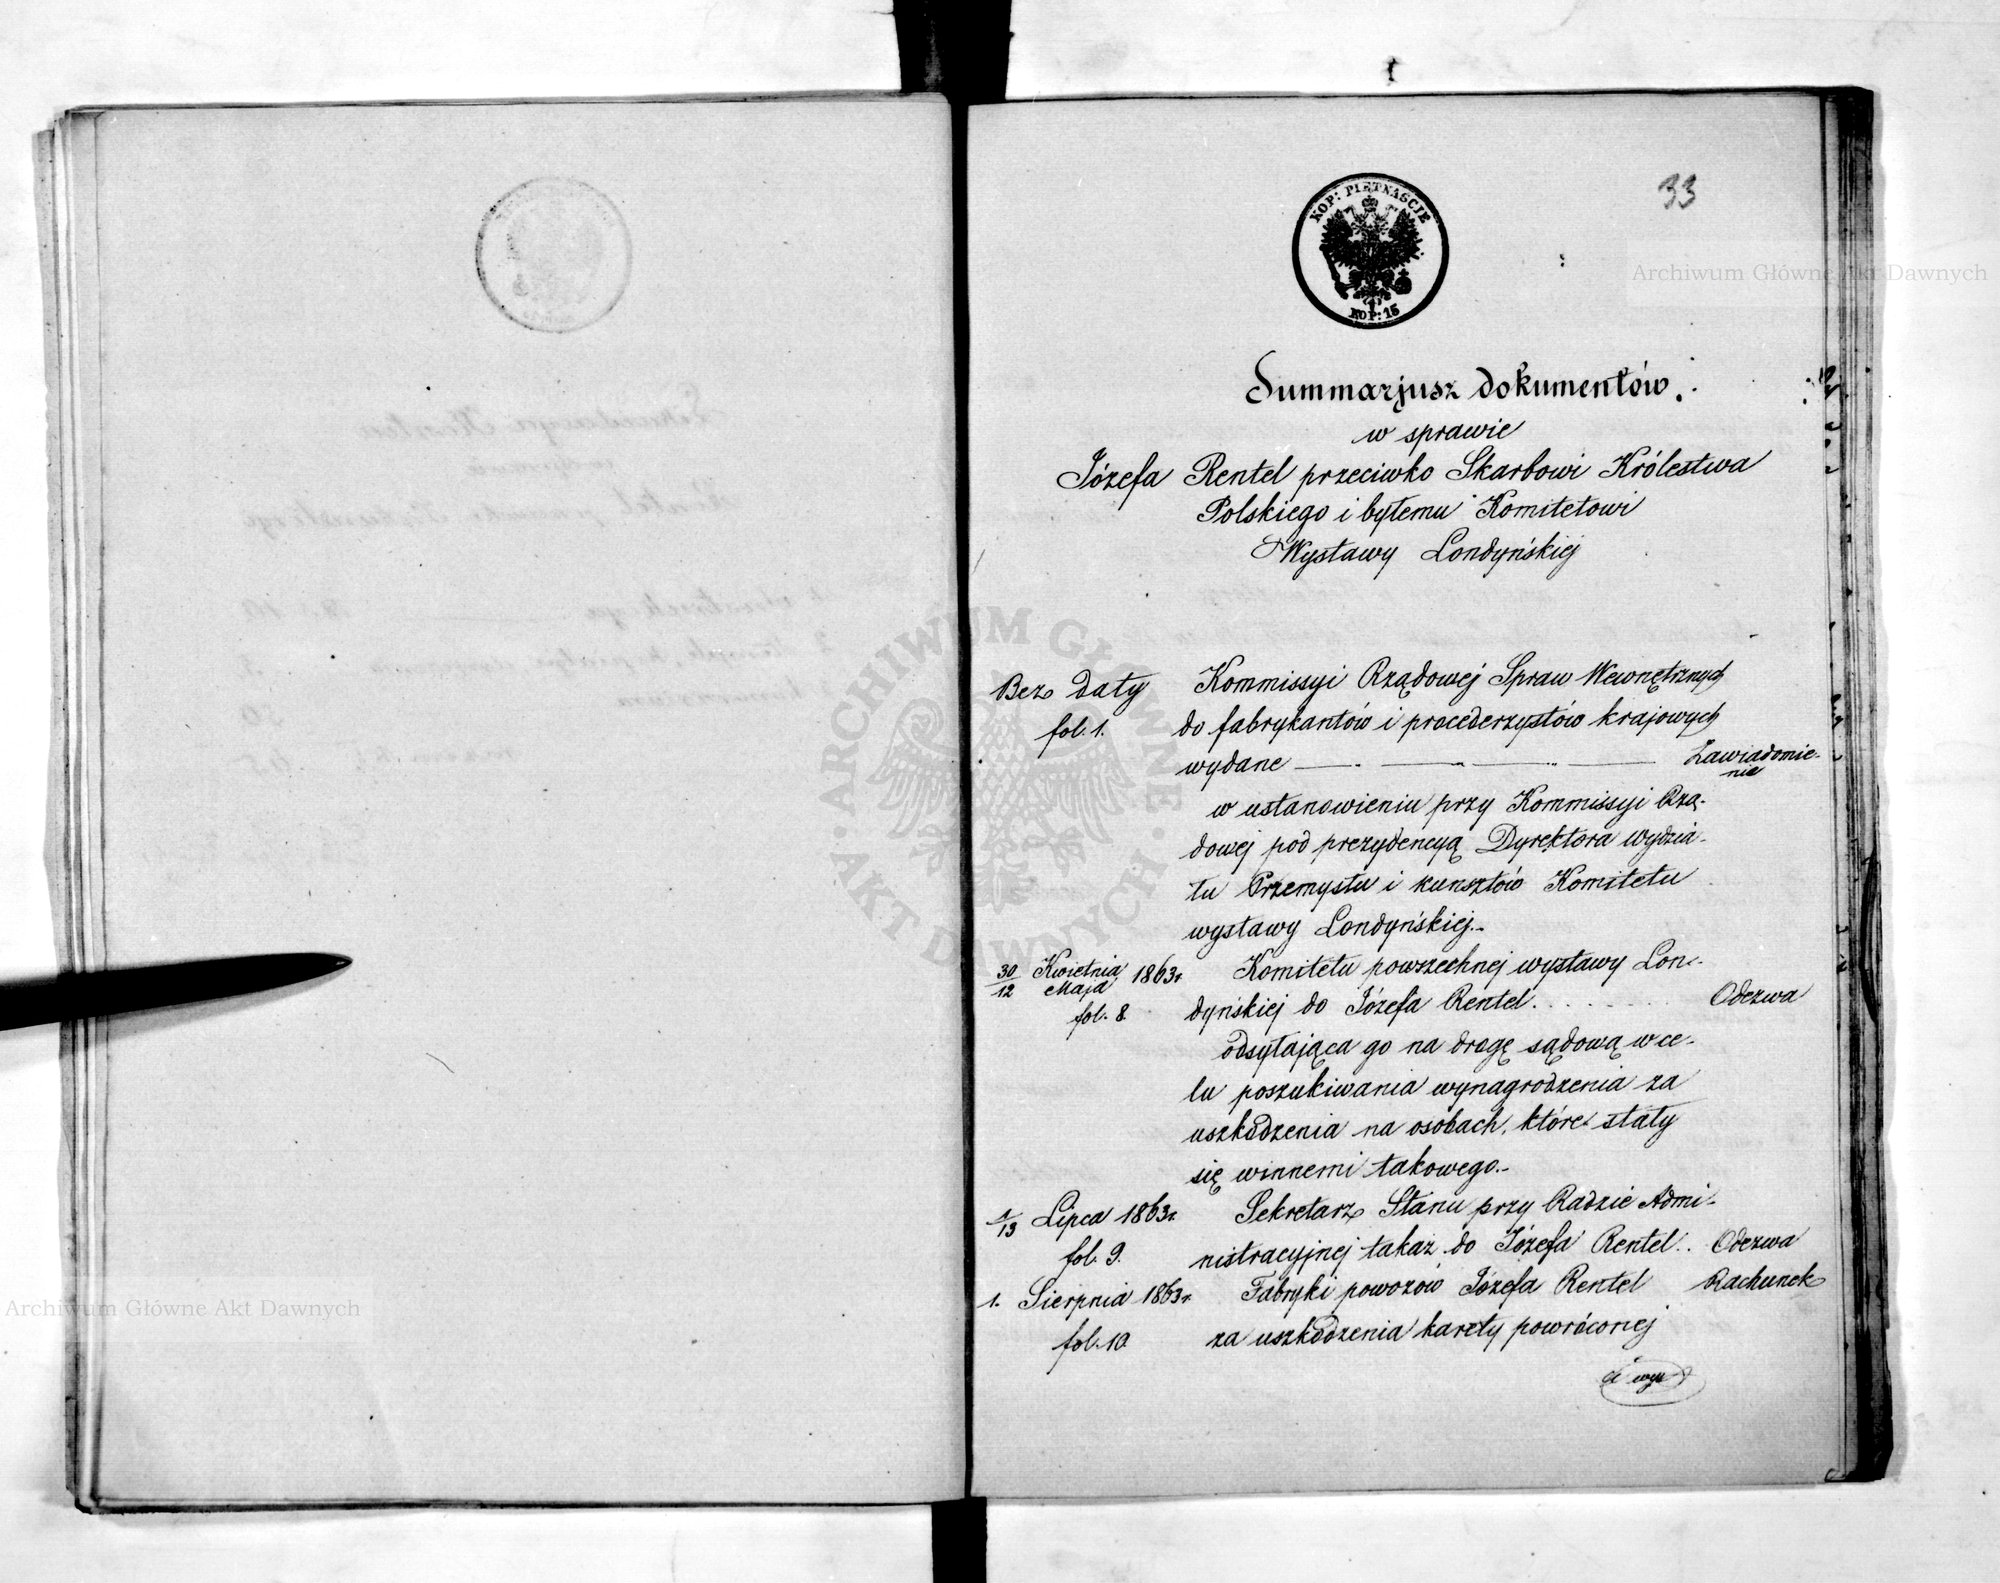 33
KOP: PIĘTNAŚCIE
KOP: 15
Summarjusz dokumentów.
w sprawie
Józefa Rentel przeciwko Skarbowi Królestwa
Polskiego i byłemu Komitetowi
Wystawy Londyńskiej
Bez daty Kommissyi Rządowej Spraw Wewnętrznych
fol. 1. do fabrykantów i procederzystów krajowych
wydane Zawiadomie-
nie
w ustanowieniu przy Kommissyi Rzą-
dowej pod prezydencyą Dyrektora wydzia-
łu Przemysłu i kunsztów Komitetu
wystawy Londyńskiej.-
30/12 Kwietnia/Maja 1863r. Komitetu powszechnej wystawy Lon-
fol. 8. dyńskiej do Józefa Rentel. . . . . . . Odezwa
odsyłająca go na drogę sądową w ce-
lu poszukiwania wynagrodzenia za
uszkodzenia na osobach, które stały
się winnemi takowego.-
1/13 Lipca 1863r. Sekretarz Stanu przy Radzie Admi-
fol. 9. nistracyjnej takaż do Józefa Rentel.. Odezwa
1. Sierpnia 1863r. Fabryki powozów Józefa Rentel Rachunek
fol. 10 za uszkodzenia karety powróconej
Archiwum Główne Akt Dawnych
ARCHIWUM GŁÓWNE · AKT DAWNYCH ·
Archiwum Główne Akt Dawnych